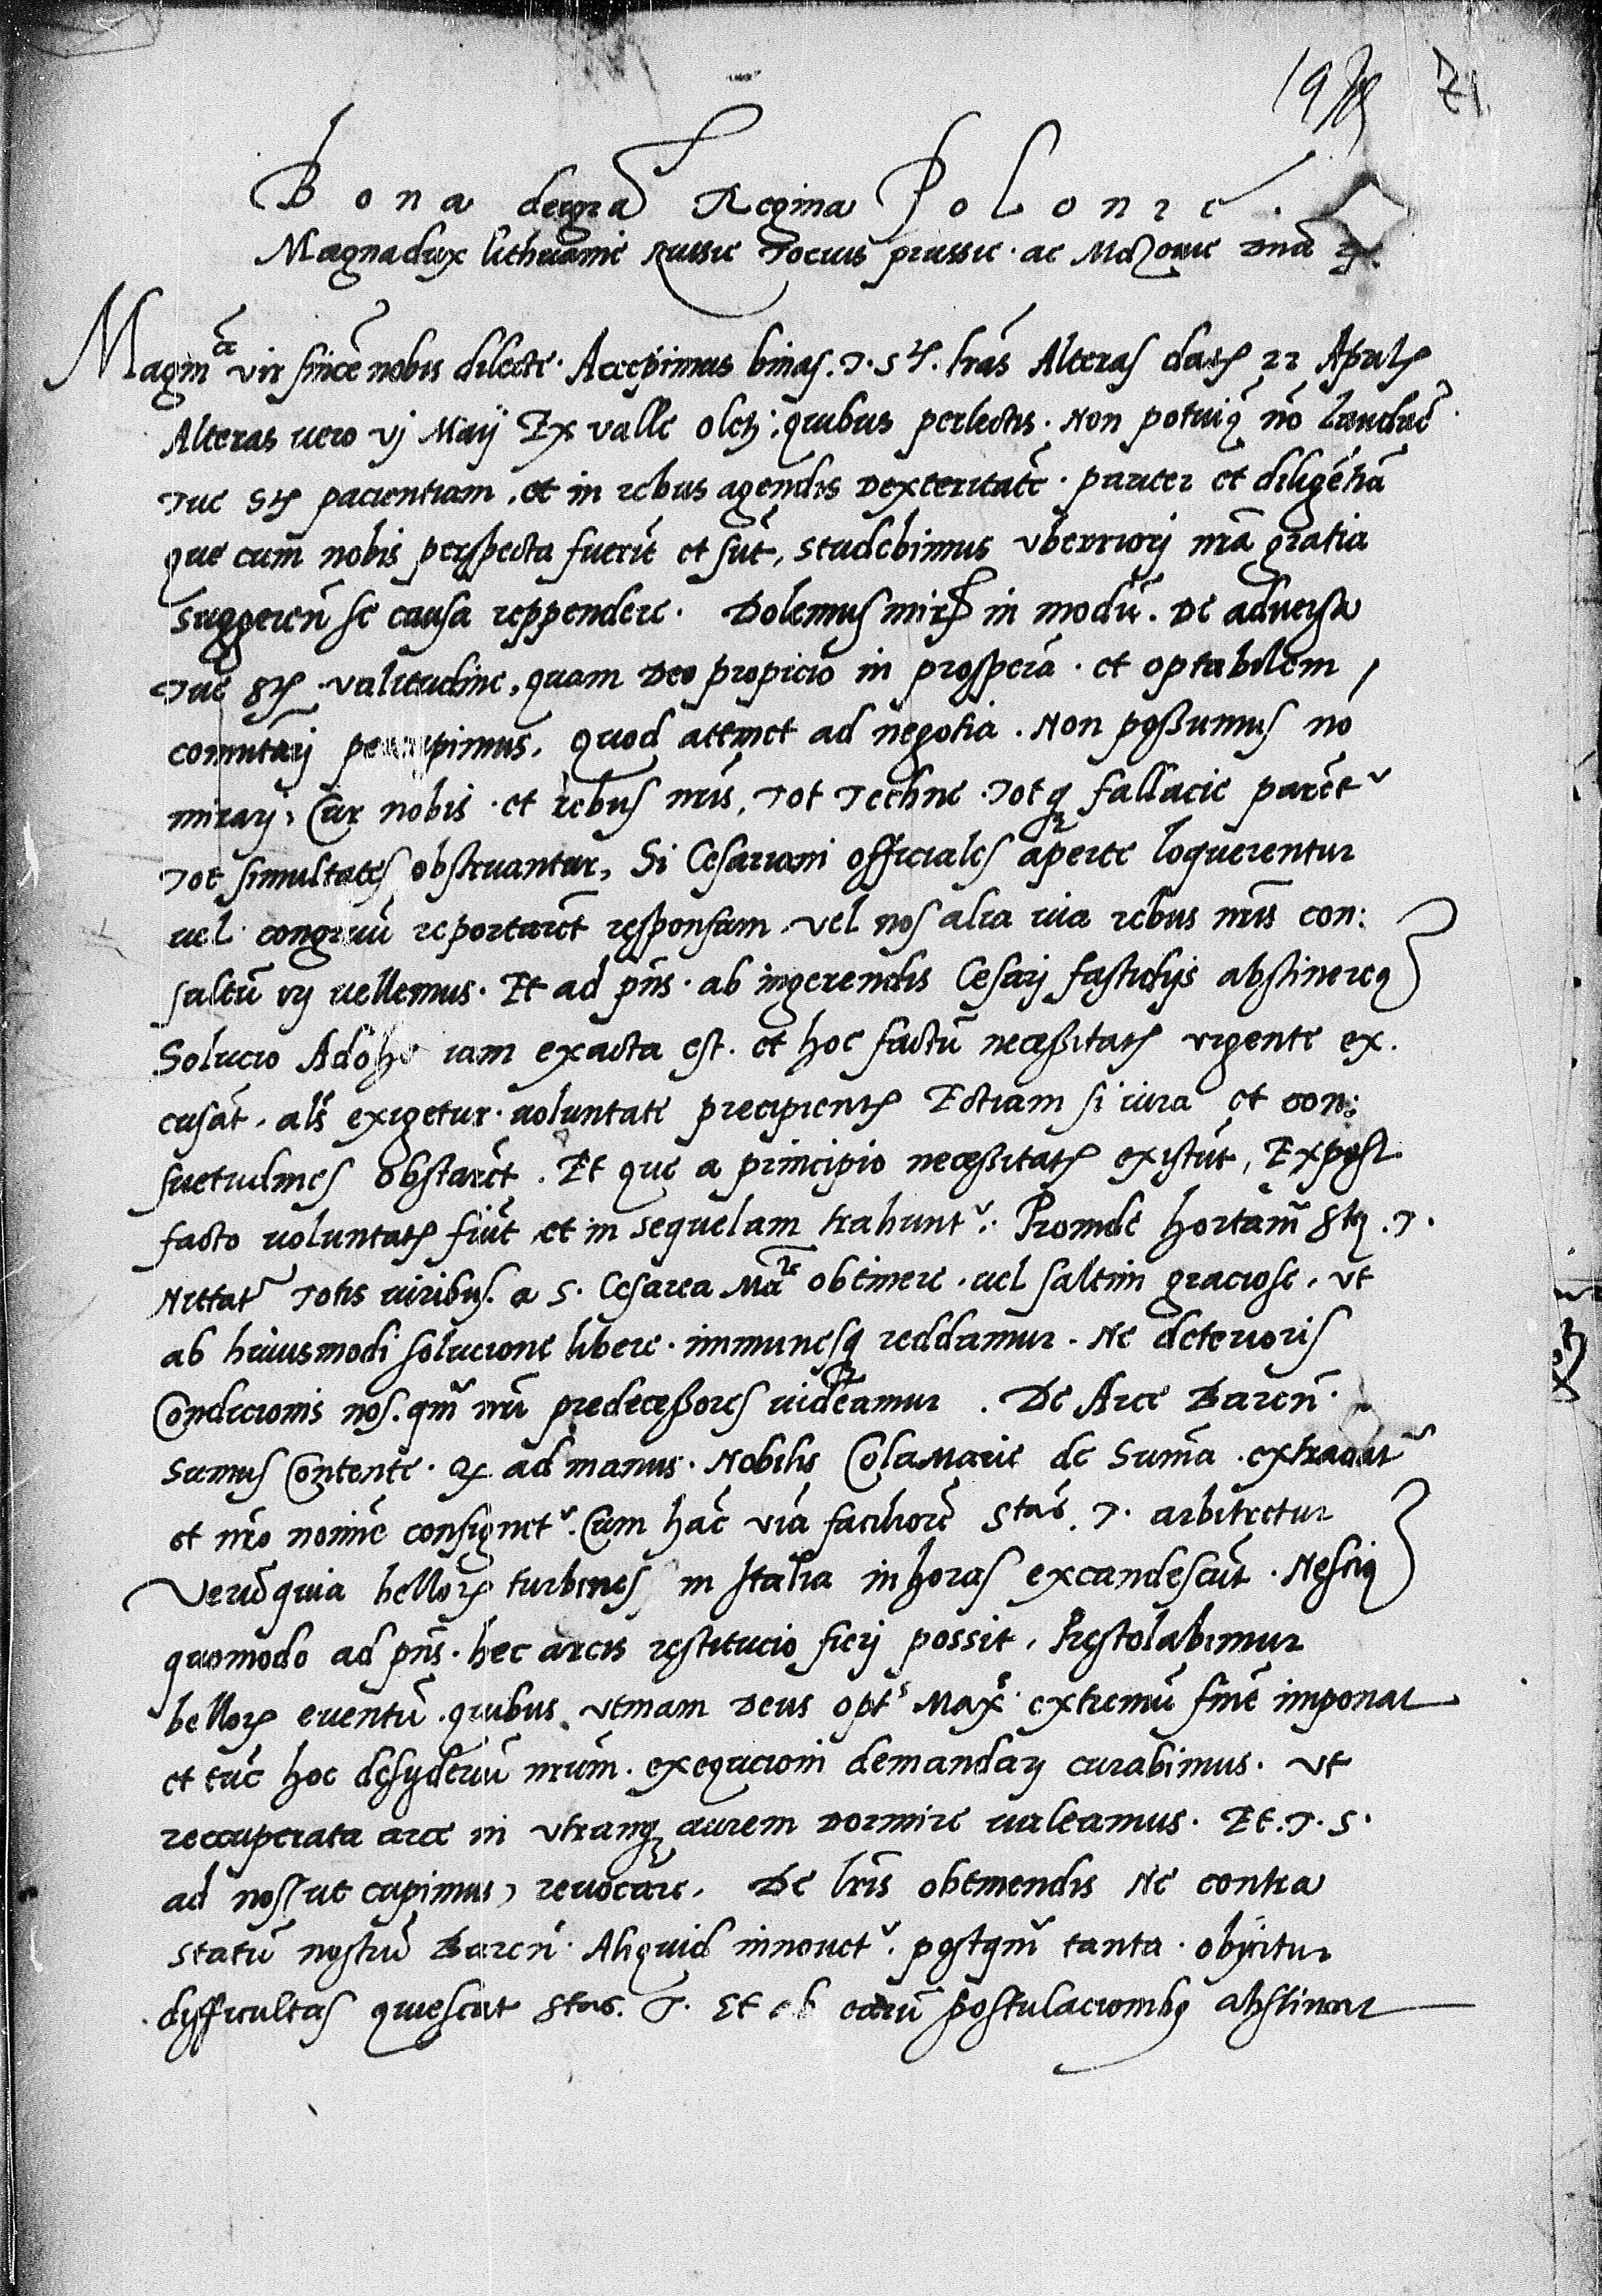 71
Bona dei gra Regina Polonie.
Magna dux lithuanie Russie Tocius prussie. ac Mazouie dnã
Magnce vir sincẽ nobis dilecte. Accepimus binas. T. Stis. lrãs Alteras datis 22 Aprilis
Alteras uero vj Maÿ Ex valle oleti: quibus perlectis. Non potuimus nõ laudare
Tue Stis pacientiam, et in rebus agendis Dexteritatẽ. pariter et diligẽtiã
que cum nobis perspecta fuerĩt et sũt, studebimus vberriorj nrã gratia
suggerẽn se causa reppendere. Dolemus mirũ in modũ. De aduersa
Tue Stis. valitudine, quam Deo propicio in prosperã. et optabilem,
comutarj percipimus, quod atinet ad negotia. Non possumus nõ
mirarj, Cur nobis. et rebus nris, Tot Techne. Totq fallacie parẽtr
Tot simultates obstruantur, Si Cesariani officiales aperte loquerentur
uel congruũ reportarẽt responsum, vel nos alia uia rebus nris con:
sultũ irj uellemus. Et ad pñs. ab ingerendis Cesarj fastidijs abstineremus
Solucio Adohe iam exacta est. et hoc factũ necessitatis vrgente ex.
cusãt, als exigetur. uoluntate precipientis Ectiam si iura et con:
suetudines obstarẽt. Et que a principio necessitatis existũt, Expost
facto uoluntatis fiũt, et in sequelam trahuntr. Proinde hortam Stẽ. T.
Nittatr Totis uiribus. a S. Cesarea Mate obtinere. uel saltim graciose, vt
ab huiusmodi solucione libere. immunesq reddamur. Ne deterioris
Condicionis nos. qm nri predecessores uideamur. De Arce Barẽn.
Sumus Contente. Q ad manus. Nobilis Cola Marie de Summa. extradatr
et nro nomine consignetr. Cum hãc viã faciliorẽ Stas. T. arbitretur
Verũ quia bellorũ turbines in Italia in horas excandescũt. Nescimus
quomodo ad pñs. hec arcis restitucio fierj possit, Prestolabimur
bellorũ euentũ. quibus vtinam Deus opts Maxs. extremũ finẽ imponat
et tũc hoc desyderiũ nrum. exequcioni demandarj curabimus. vt
reccuperata arce in vtranq aurem Dormire ualeamus. Et. T. S.
ad nos, ut cupimus, reuocare. De lris obtinendis Ne contra
Statũ nostrũ Barẽn. Aliquid innouetr. postqm tanta. obijcitur
difficultas quiescat Stas. T. Et ab earũ postulacionibus abstineat